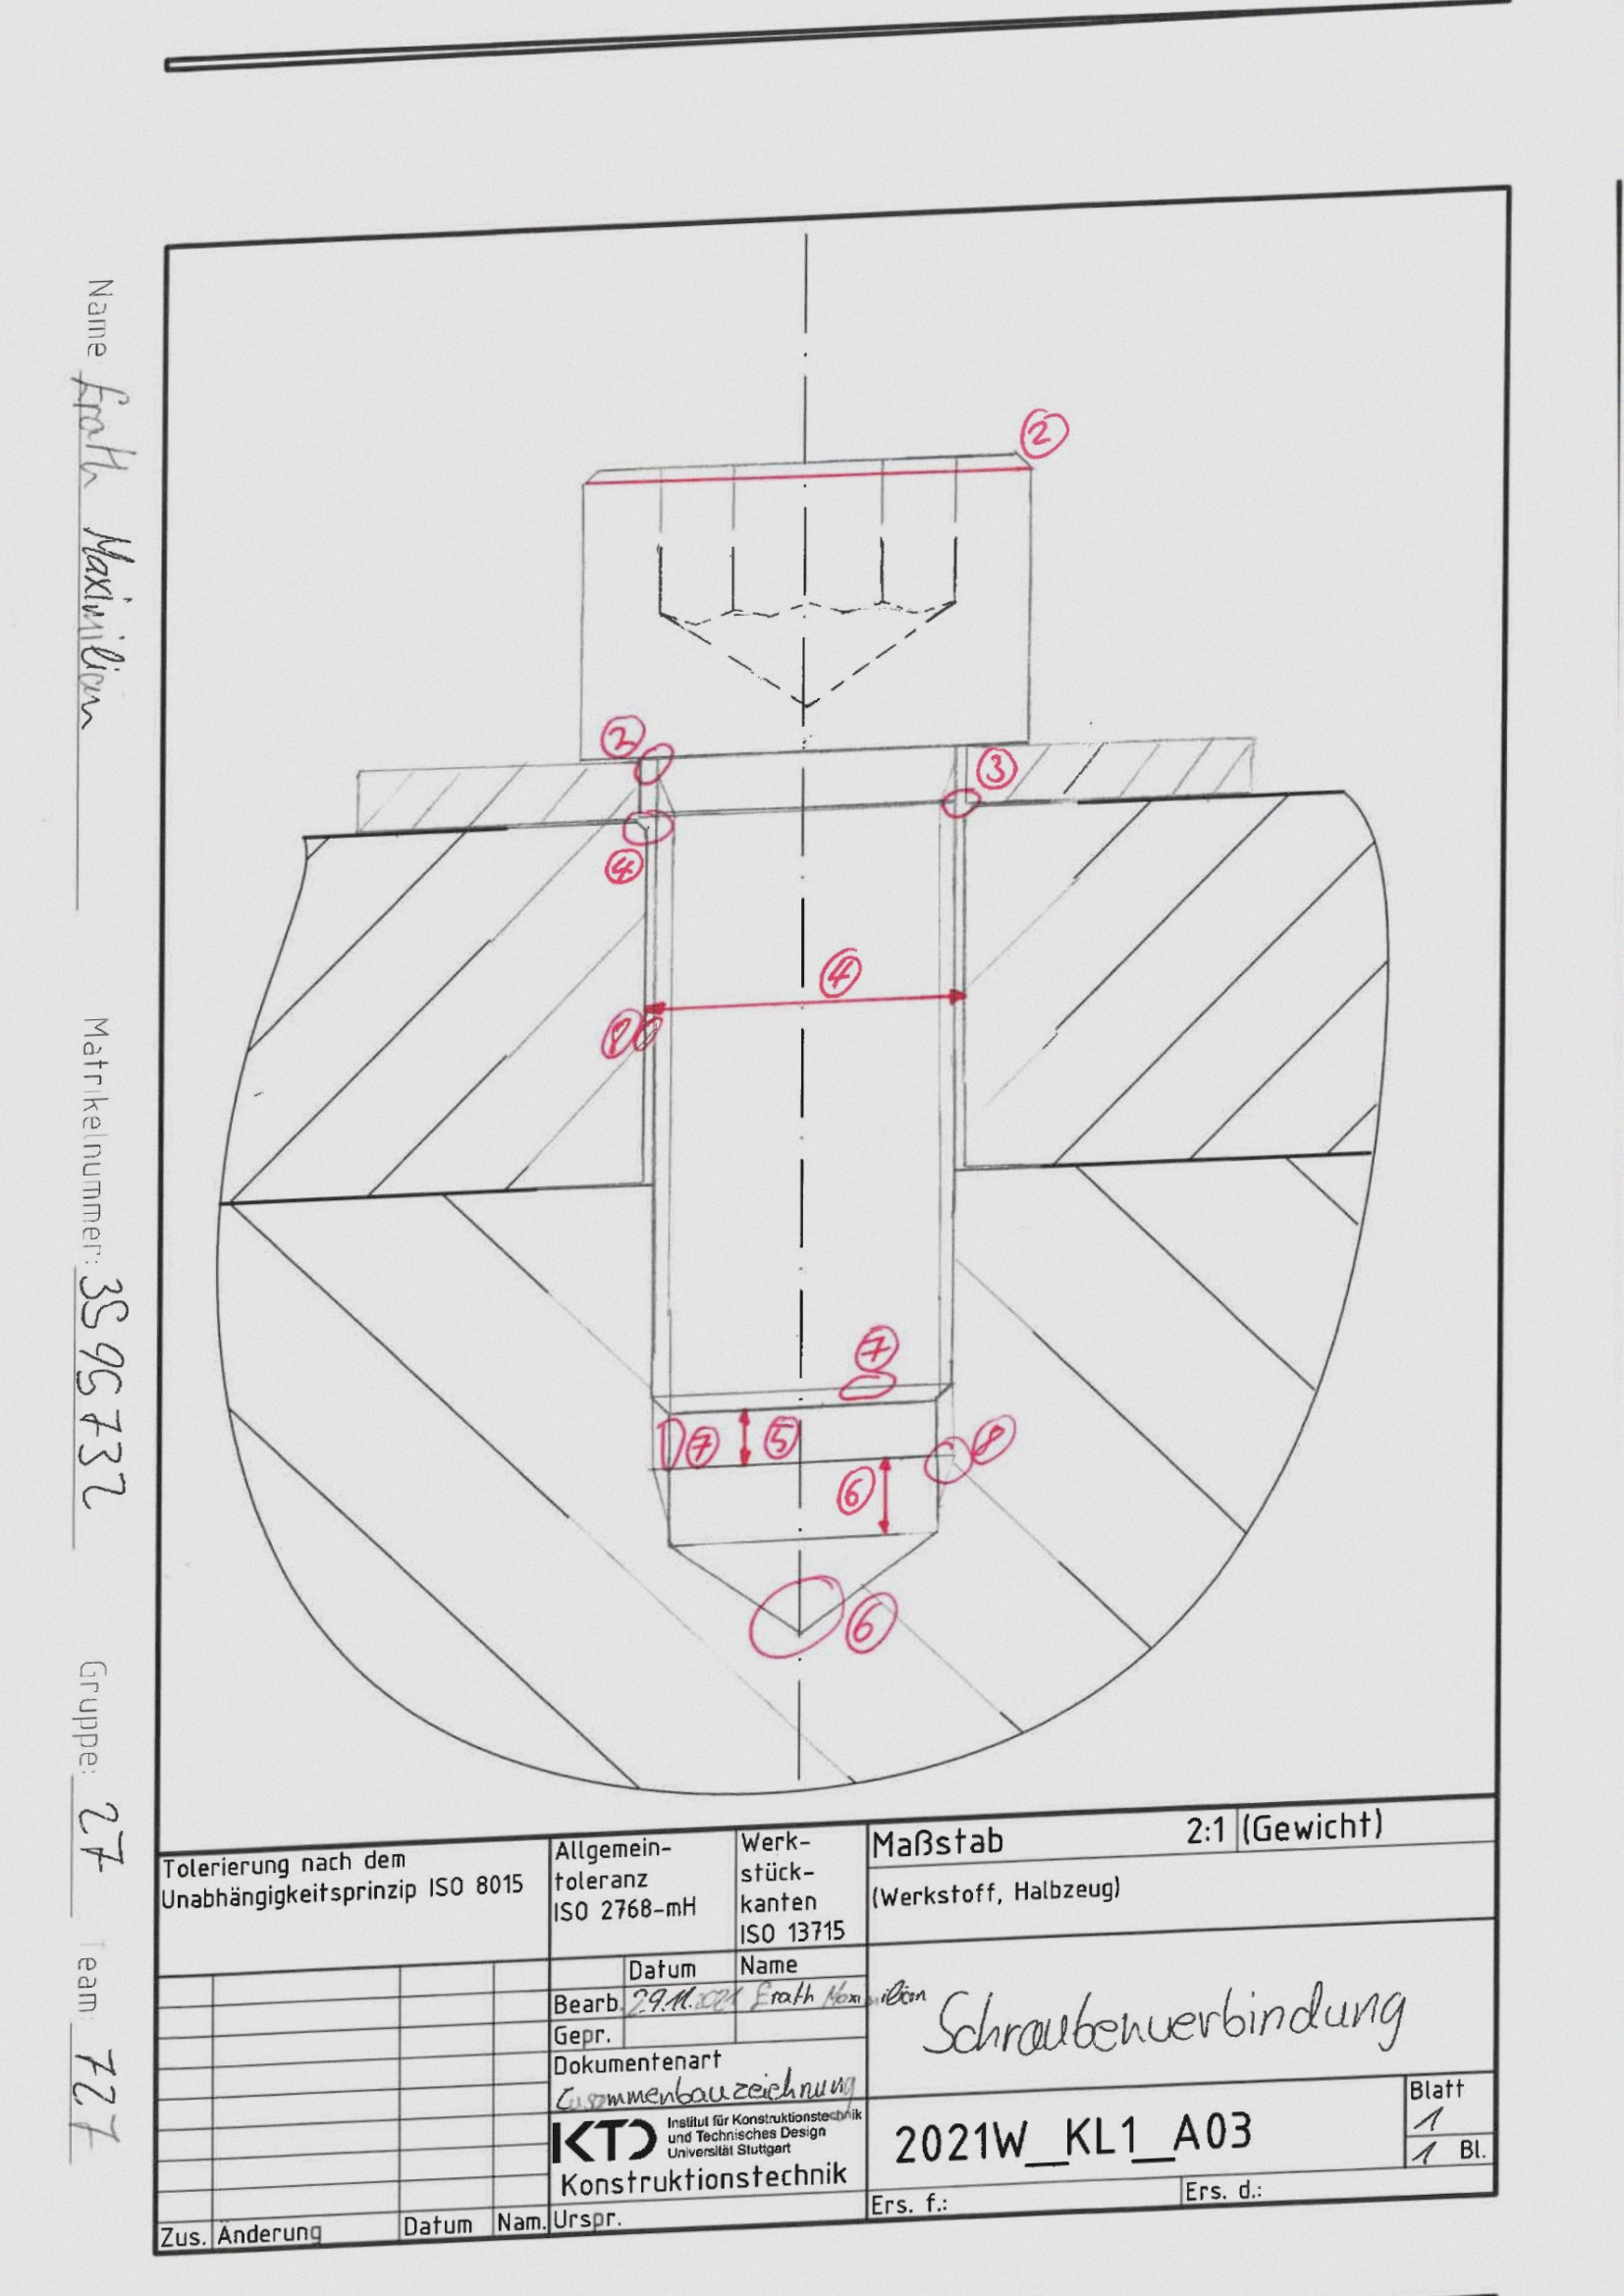 Name Erath Maximilian
Matrikelnummer: 3595732
Gruppe: 27
Team: 727
2
2
3
4
4
8
7
7
5
8
6
6
Tolerierung nach dem
Unabhängigkeitsprinzip ISO 8015
Allgemein-
toleranz
ISO 2768-mH
Werk-
stück-
kanten
ISO 13715
Maßstab 2:1 (Gewicht)
(Werkstoff, Halbzeug)
Datum Name
Bearb. 29.11.2021 Erath Maximilian
Gepr.
Schraubenverbindung
Dokumentenart
Zusammenbauzeichnung
KTD Institut für Konstruktionstechnik
und Technisches Design
Universität Stuttgart
Konstruktionstechnik
2021W_KL1_A03
Blatt
1
1 Bl.
Zus. Änderung Datum Nam. Urspr.
Ers. f.: Ers. d.: